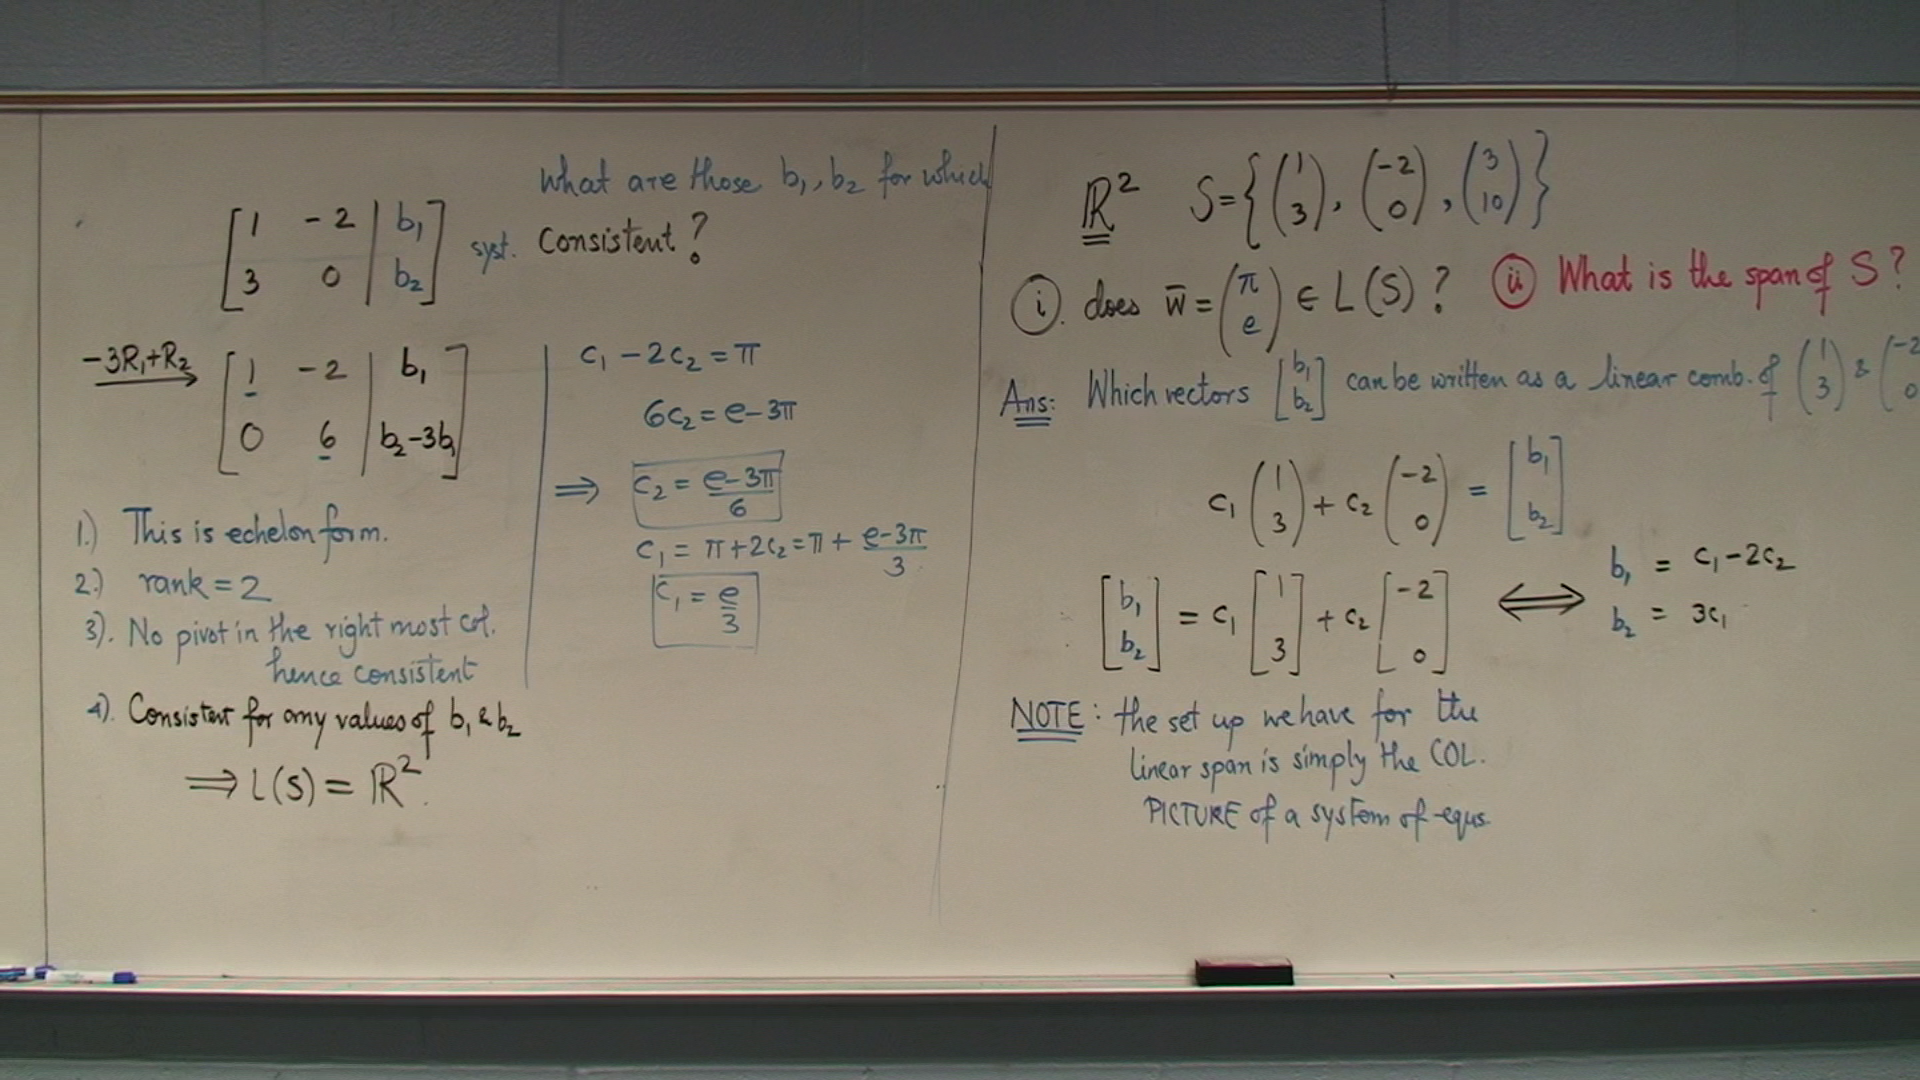 What are those b₁, b₂ for which
[1 -2 | b₁] syst. Consistent?
[3 0 | b₂]
-3R₁+R₂ → [1 -2 | b₁]
[0 6 | b₂-3b₁]
1.) This is echelon form.
2.) rank = 2
3). No pivot in the right most col.
hence consistent
4). Consistent for any values of b₁ & b₂
⟹ L(S) = ℝ².
c₁ - 2c₂ = π
6c₂ = e-3π
⟹ c₂ = (e-3π)/6
c₁ = π+2c₂ = π + (e-3π)/3
c₁ = e/3
ℝ² S = { (1 3), (-2 0), (3 10) }
(i). does w̄ = (π e) ∈ L(S)? (ii) What is the span of S?
Ans: Which vectors [b₁ b₂] can be written as a linear comb. of (1 3) & (-2 0
c₁ (1 3) + c₂ (-2 0) = [b₁ b₂]
[b₁ b₂] = c₁ [1 3] + c₂ [-2 0] ⟺ b₁ = c₁-2c₂
b₂ = 3c₁
NOTE: the set up we have for the
linear span is simply the COL.
PICTURE of a system of eqns.